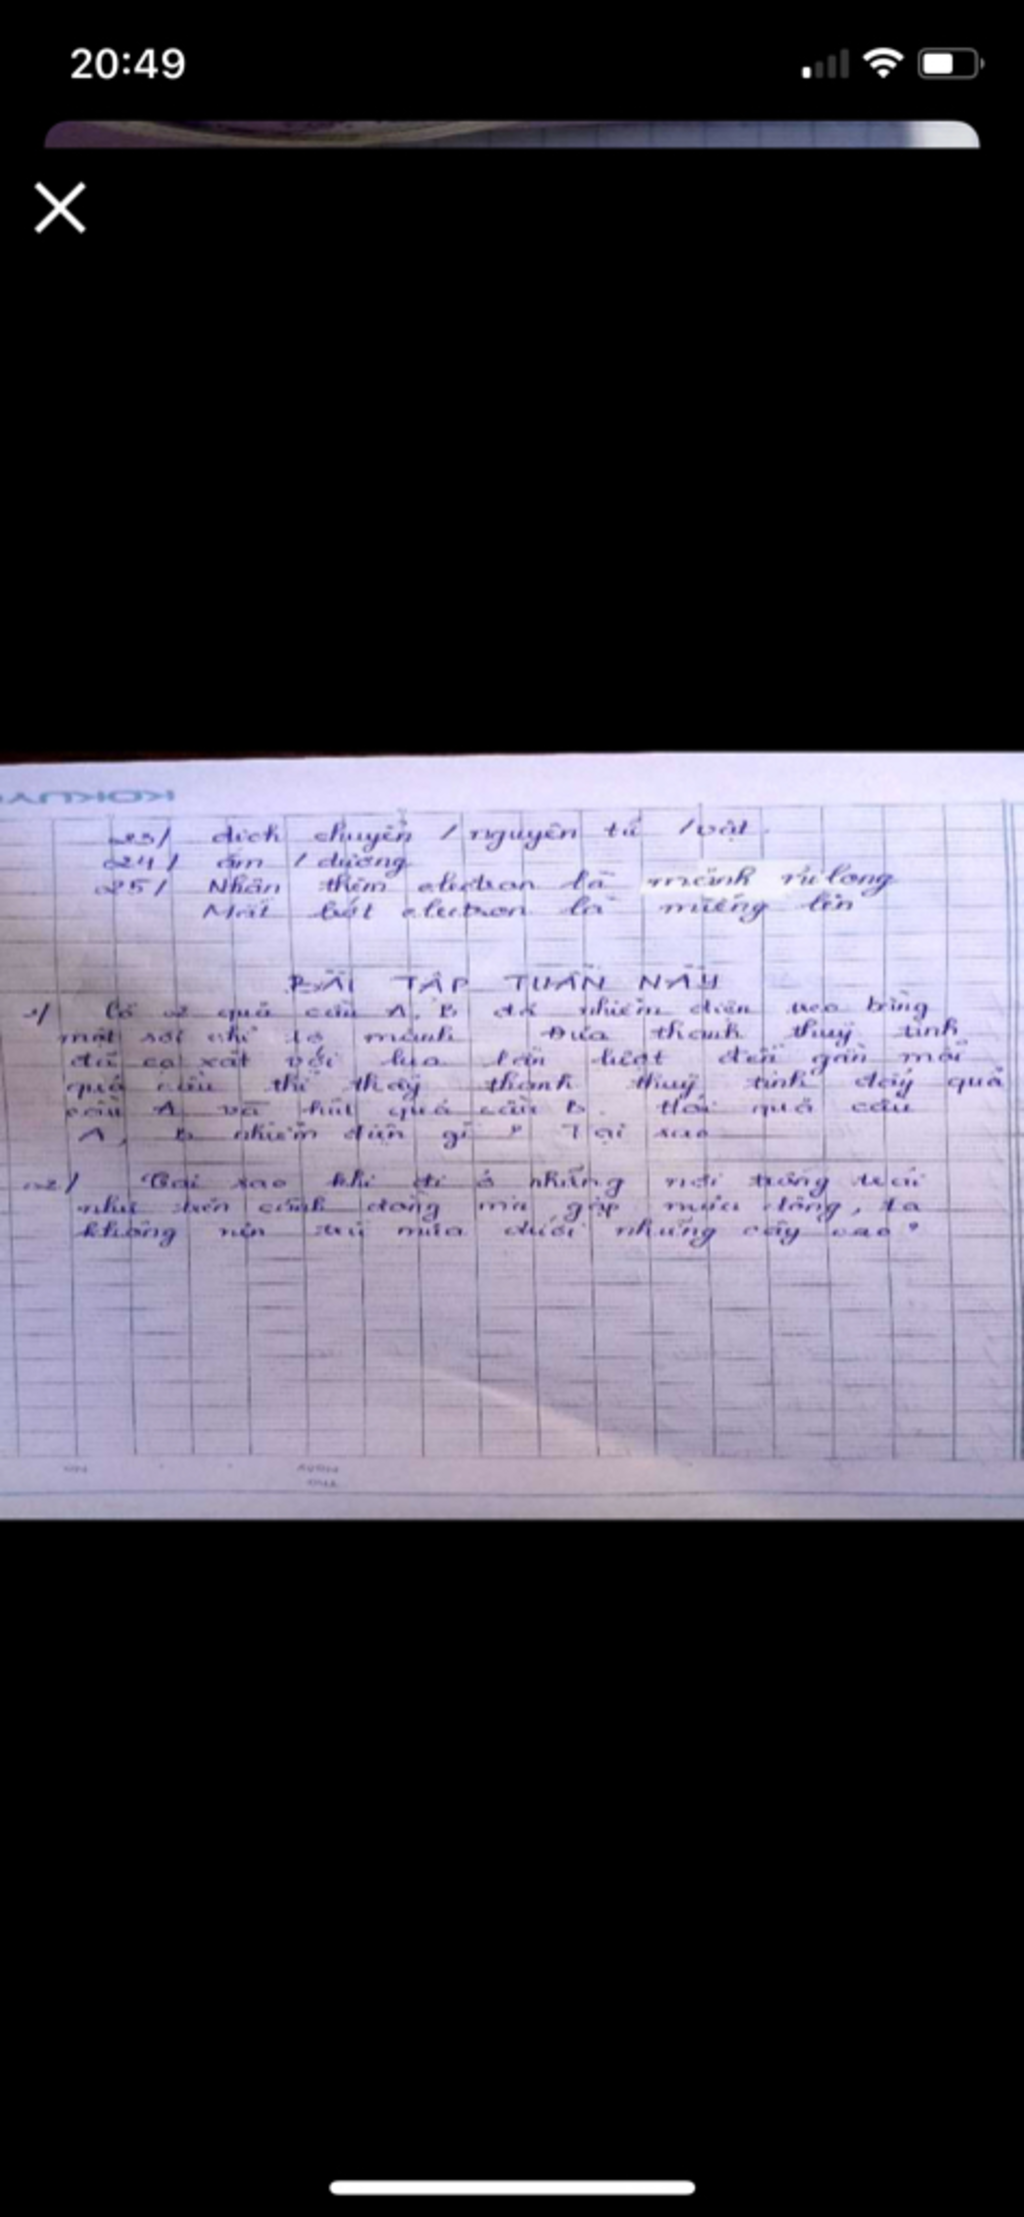 20:49
KOKUYO
23/ dịch chuyển / nguyên tử / vật.
24/ âm / dương
25/ Nhận thêm electron là mảnh nilong
Mất bớt electron là miếng len
BÀI TẬP TUẦN NÀY
1/ Có 2 quả cầu A, B đã nhiễm điện treo bằng
một sợi chỉ tơ mảnh. Đưa thanh thuỷ tinh
đã cọ xát với lụa lần lượt đến gần mỗi
quả cầu thì thấy thanh thuỷ tinh đẩy quả
cầu A và hút quả cầu B. Hỏi quả cầu
A, B nhiễm điện gì? Tại sao
2/ Tại sao khi đi ở những nơi trống trải
như trên cánh đồng mà gặp mưa dông, ta
không nên trú mưa dưới những cây cao?